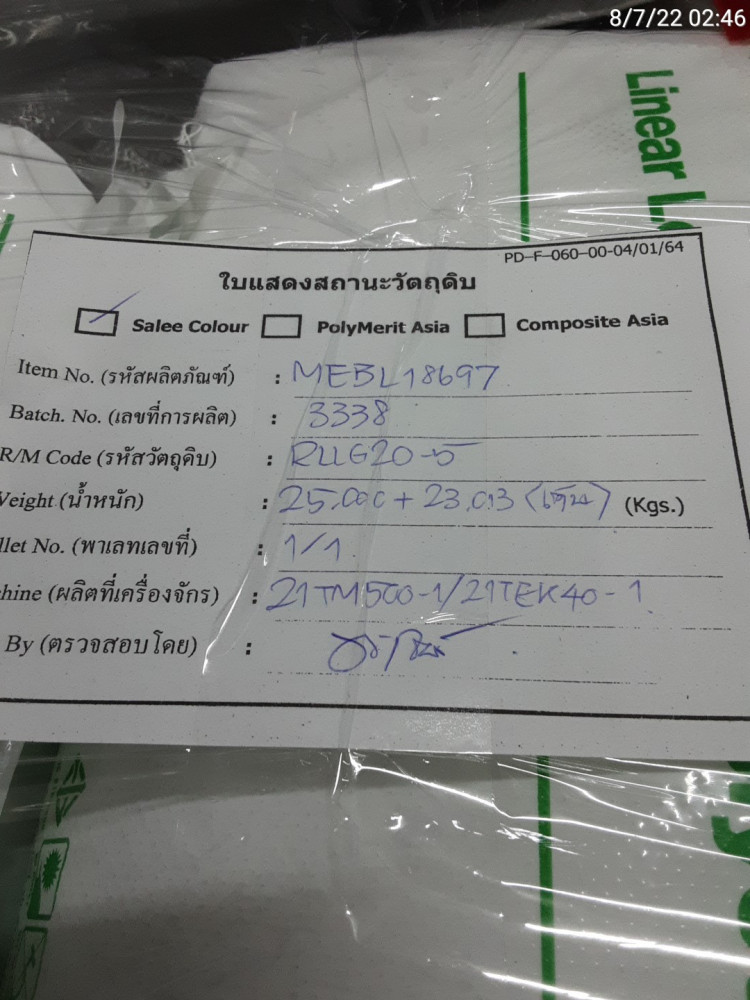 8/7/22 02:46
Linear L
PD-F-060-00-04/01/64
ใบแสดงสถานะวัตถุดิบ
Salee Colour PolyMerit Asia Composite Asia
Item No. (รหัสผลิตภัณฑ์) : MEBL18697
Batch. No. (เลขที่การผลิต) : 3338
R/M Code (รหัสวัตถุดิบ) : RLLG20-5
Weight (น้ำหนัก) : 25.000 + 23.013 (Kgs.)
llet No. (พาเลทเลขที่) : 1/1
hine (ผลิตที่เครื่องจักร) : 21TM500-1/21TEK40-1
By (ตรวจสอบโดย) :